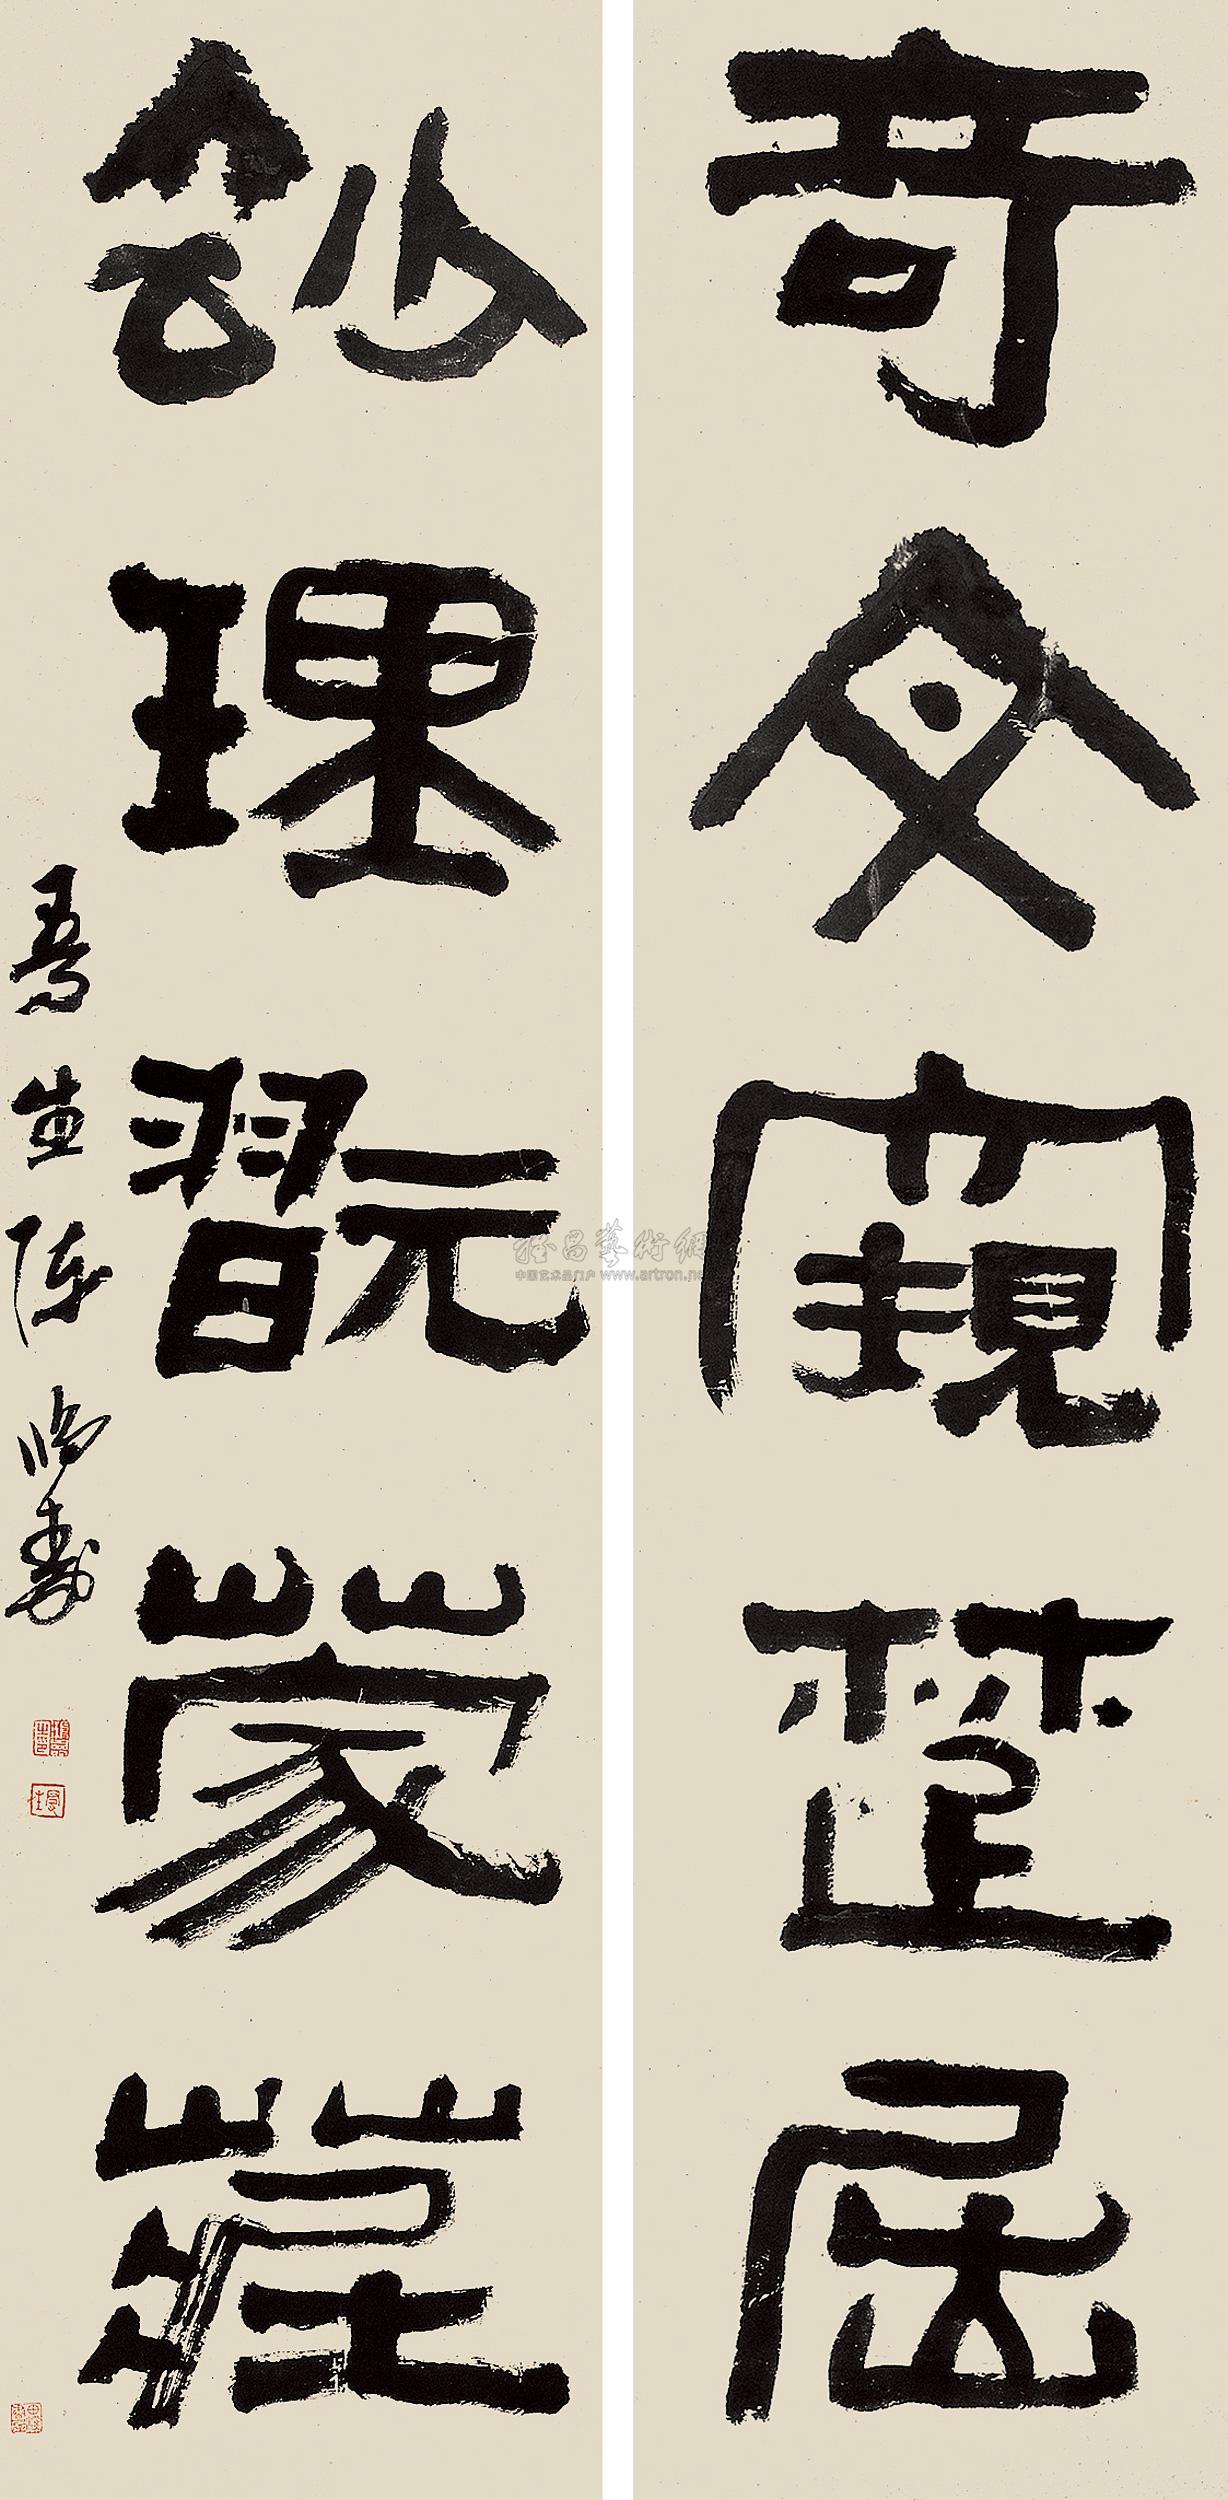 奇文窺楚屈
玅理翫蒙莊
曼生陳鴻壽
雅昌藝術網
中国艺术品门户 www.artron.net